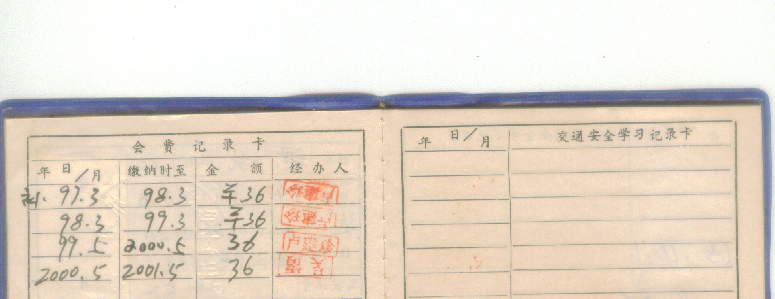 会费记录卡
年 日/月 缴纳时至 金额 经办人
97.3 98.3 36
98.3 99.3 36
99.5 2000.5 36
2000.5 2001.5 36
年 日/月 交通安全学习记录卡